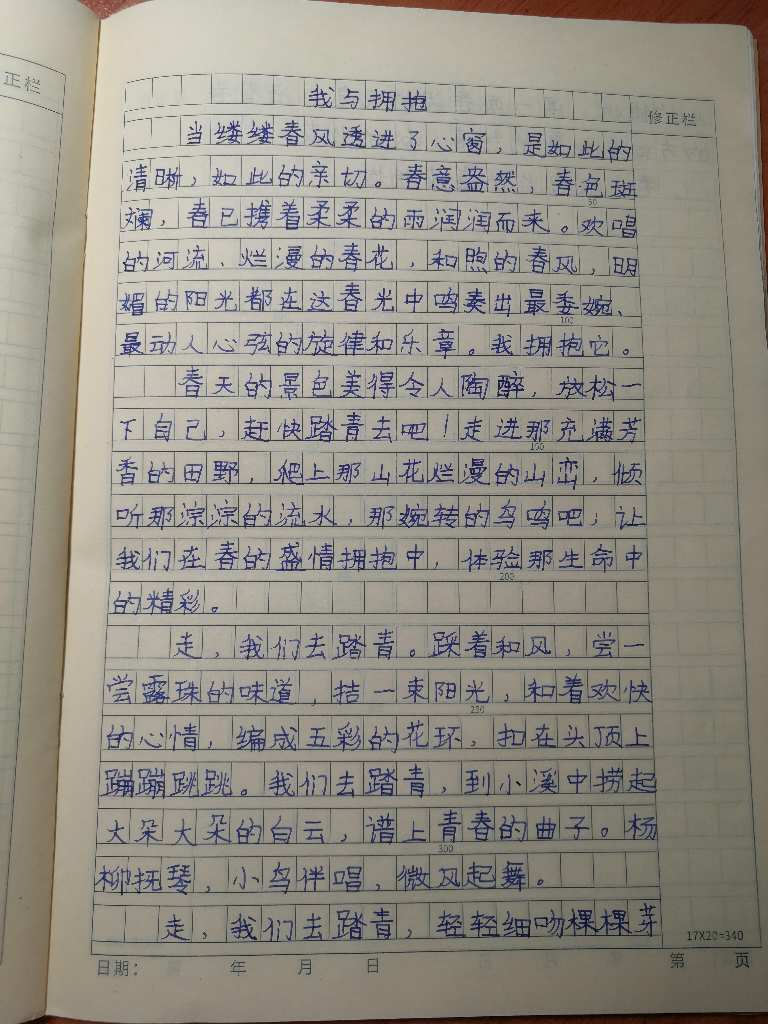 正栏
我与拥抱
修正栏
当缕缕春风透进了心窗，是如此的
清晰，如此的亲切。春意盎然，春色斑
50
斓，春已携着柔柔的雨润润而来。欢唱
的河流、烂漫的春花，和煦的春风，明
媚的阳光都在这春光中鸣奏出最委婉、
100
最动人心弦的旋律和乐章。我拥抱它。
春天的景色美得令人陶醉，放松一
下自己，赶快踏青去吧！走进那充满芳
150
香的田野，爬上那山花烂漫的山峦，倾
听那淙淙的流水，那婉转的鸟鸣吧，让
我们在春的盛情拥抱中，体验那生命中
200
的精彩。
走，我们去踏青。踩着和风，尝一
尝露珠的味道，拮一束阳光，和着欢快
250
的心情，编成五彩的花环，扣在头顶上
蹦蹦跳跳。我们去踏青，到小溪中捞起
大朵大朵的白云，谱上青春的曲子。杨
300
柳抚琴，小鸟伴唱，微风起舞。
走，我们去踏青，轻轻细吻棵棵芽
17X20=340
日期： 年 月 日 第 页